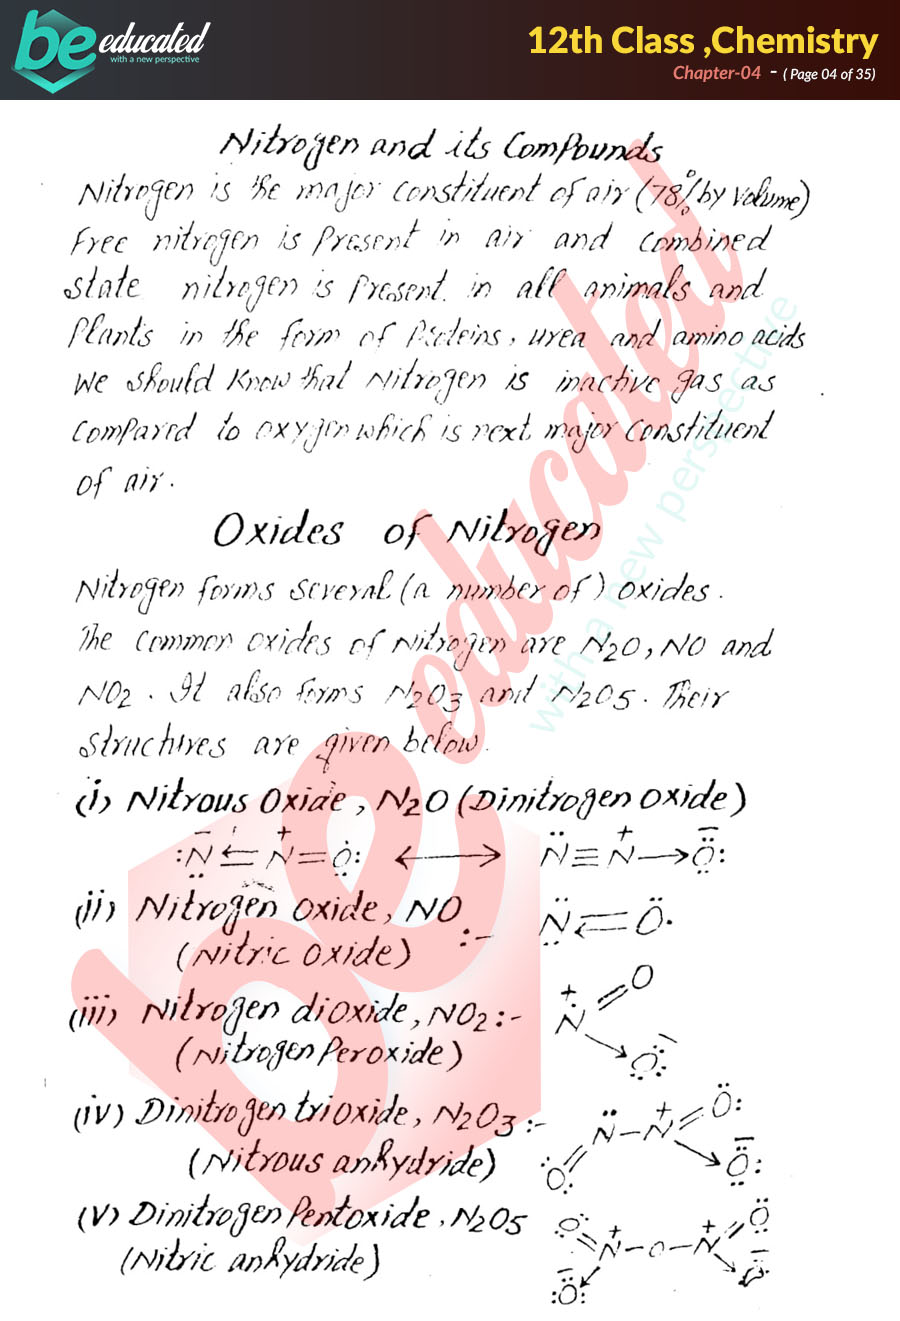 be educated
with a new perspective
12th Class ,Chemistry
Chapter-04 - ( Page 04 of 35)
Nitrogen and its Compounds
Nitrogen is the major constituent of air (78% by volume)
Free nitrogen is present in air and combined
state nitrogen is present. in all animals and
plants in the form of proteins, urea and amino acids
We should know that Nitrogen is inactive gas as
compared to oxygen which is next major constituent
of air.
Oxides of Nitrogen
Nitrogen forms several (a number of) oxides.
The common oxides of Nitrogen are N2O, NO and
NO2. It also forms N2O3 and N2O5. Their
structures are given below.
(i) Nitrous Oxide, N2O (Dinitrogen oxide)
:N ⇐ N = O: ⟷ N ≡ N → O:
(ii) Nitrogen Oxide, NO :- N = O
(Nitric oxide)
(iii) Nitrogen dioxide, NO2 :- O
N
(Nitrogen Peroxide) O
(iv) Dinitrogen trioxide, N2O3 :- N – N O:
(Nitrous anhydride) O O:
(v) Dinitrogen Pentoxide, N2O5 O N – O – N O
(Nitric anhydride) :O: O
be educated
with a new perspective